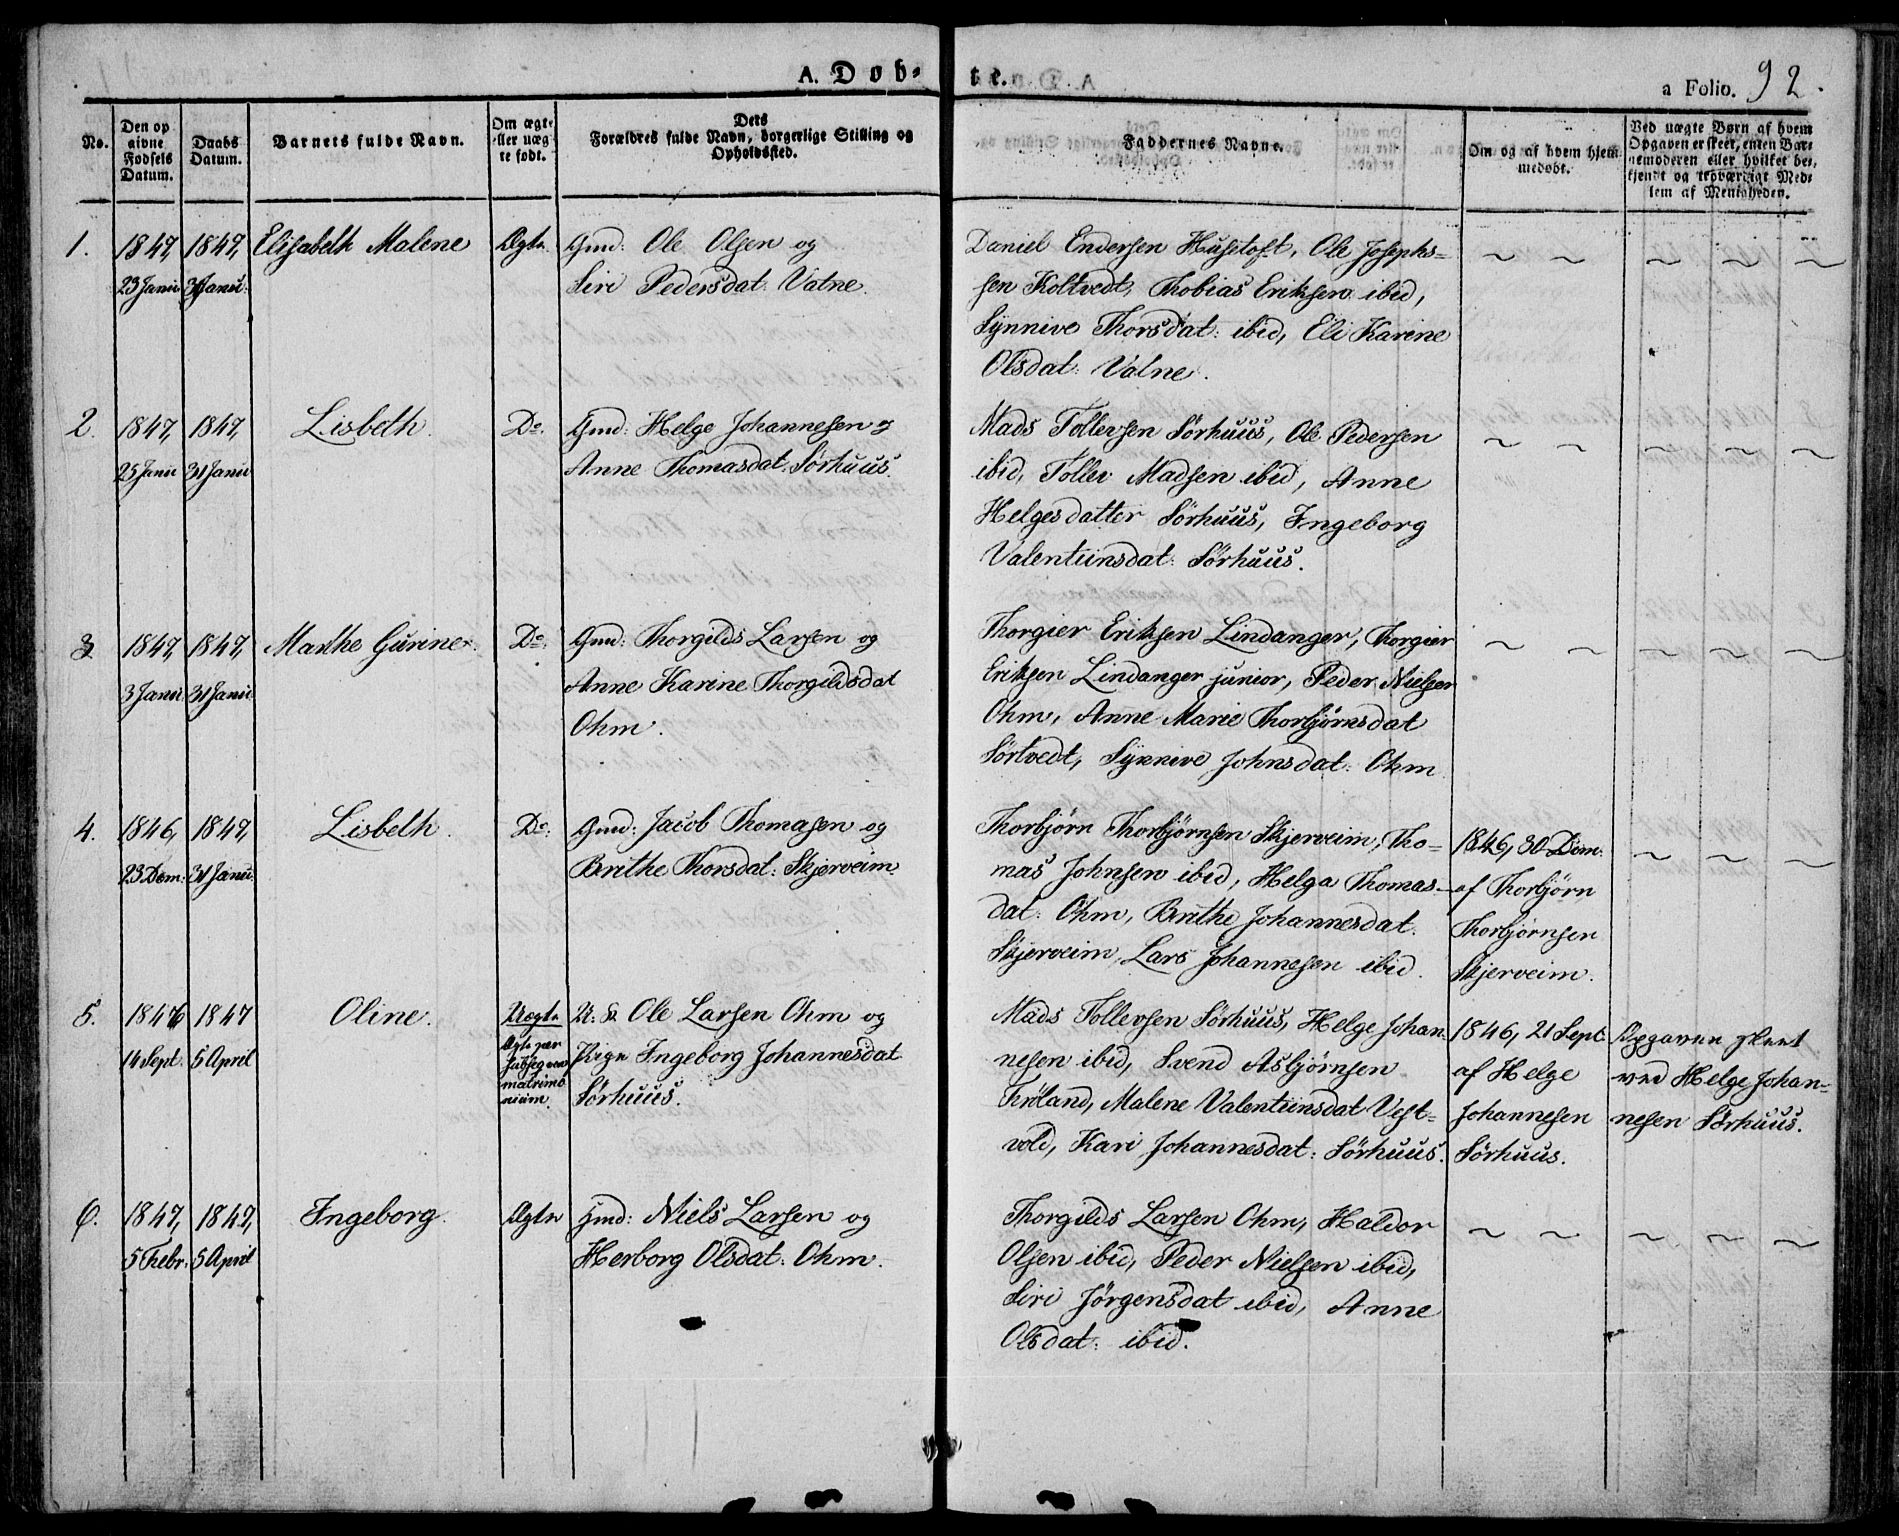 A. Døb=
te.
a Folio. 92.
No.
Den op
givne
Fødsels
Datum.
Daabs
Datum.
Barnets fulde Navn.
Om ægte
eller uæg
te født.
Dets
Forældres fulde Navn, borgerlige Stilling og
Opholdssted.
Faddernes Navne.
Om og af hvem hjem
medøbt.
Ved uægte Børn af hvem
Opgaven er skeet, enten Bar=
nemoderen eller hvilket be=
kjendt og troværdigt Med=
lem af Menigheden.
1.
1847,
23 Janu
1847,
31 Janu:
Elisabeth Malene
Ægte
Gmd: Ole Olsen og
Siri Pedersdat: Vatne.
Daniel Endersen Hustoft, Ole Josephs=
sen Koltvedt, Thobias Eriksen ibid,
Synnive Thorsdat: ibid, Eli Karine
Olsdat: Vatne.
~ ~ ~ ~ ~
2.
1847,
25 Janu
1847,
31 Janu
Lisbeth.
Do.
Gmd: Helge Johannesen og
Anne Thomasdat: Sørhuus.
Mads Tollevsen Sørhuus, Ole Pedersen
ibid, Tollev Madsen ibid, Anne
Helgesdatter Sørhuus, Ingeborg
Valentiinsdat: Sørhuus.
~ ~ ~ ~ ~
3.
1847,
3 Janu:
1847,
31 Janu
Marthe Gurine.
Do:
Gmd: Thorgilds Larsen og
Anne Karine Thorgildsdat
Ohm.
Thorgier Eriksen Lindanger, Thorgier
Eriksen Lindanger junior, Peder Nielsen
Ohm, Anne Marie Thorbjørnsdat
Sørtvedt, Synnive Johnsdat: Ohm
~ ~ ~ ~ ~
4.
1846,
23 Dem:
1847,
31 Janu:
Lisbeth.
Do:
Gmd: Jacob Thomasen og
Brithe Thorsdat: Skjerveim
Thorbjørn Thorbjørnsen Skjerveim, Tho=
mas Johnsen ibid, Helga Thomas=
dat: Ohm, Brithe Johannesdat.
Skjerveim, Lars Johannesen ibid.
1846, 30 Dem:
af Thorbjørn
Thorbjørnsen
Skjerveim.
~ ~ ~
5.
1846
14 Sept:
1847
5 April
Oline.
Uægte
Ægte per
subseqven
matrimo
nium.
U. S. Ole Larsen Ohm og
Pige Ingeborg Johannesdat
Sørhuus.
Mads Tollevsen Sørhuus, Helge Johan
nesen ibid, Svend Asbjørnsen
Frøland, Malene Valentiinsdat Vest=
vold, Kari Johannesdat: Sørhuus.
1846, 21 Sept.
af Helge
Johannesen
Sørhuus.
Opgaven skeet
ved Helge Johan=
nesen Sørhuus.
6.
1847,
5 Febr:
1847,
5 April
Ingeborg.
Ægte
Gmd: Niels Larsen og
Herborg Olsdat: Ohm.
Thorgilds Larsen Ohm, Haldor
Olsen ibid, Peder Nielsen ibid,
Siri Jørgensdat ibid, Anne
Olsdat: ibid.
~ ~ ~ ~ ~